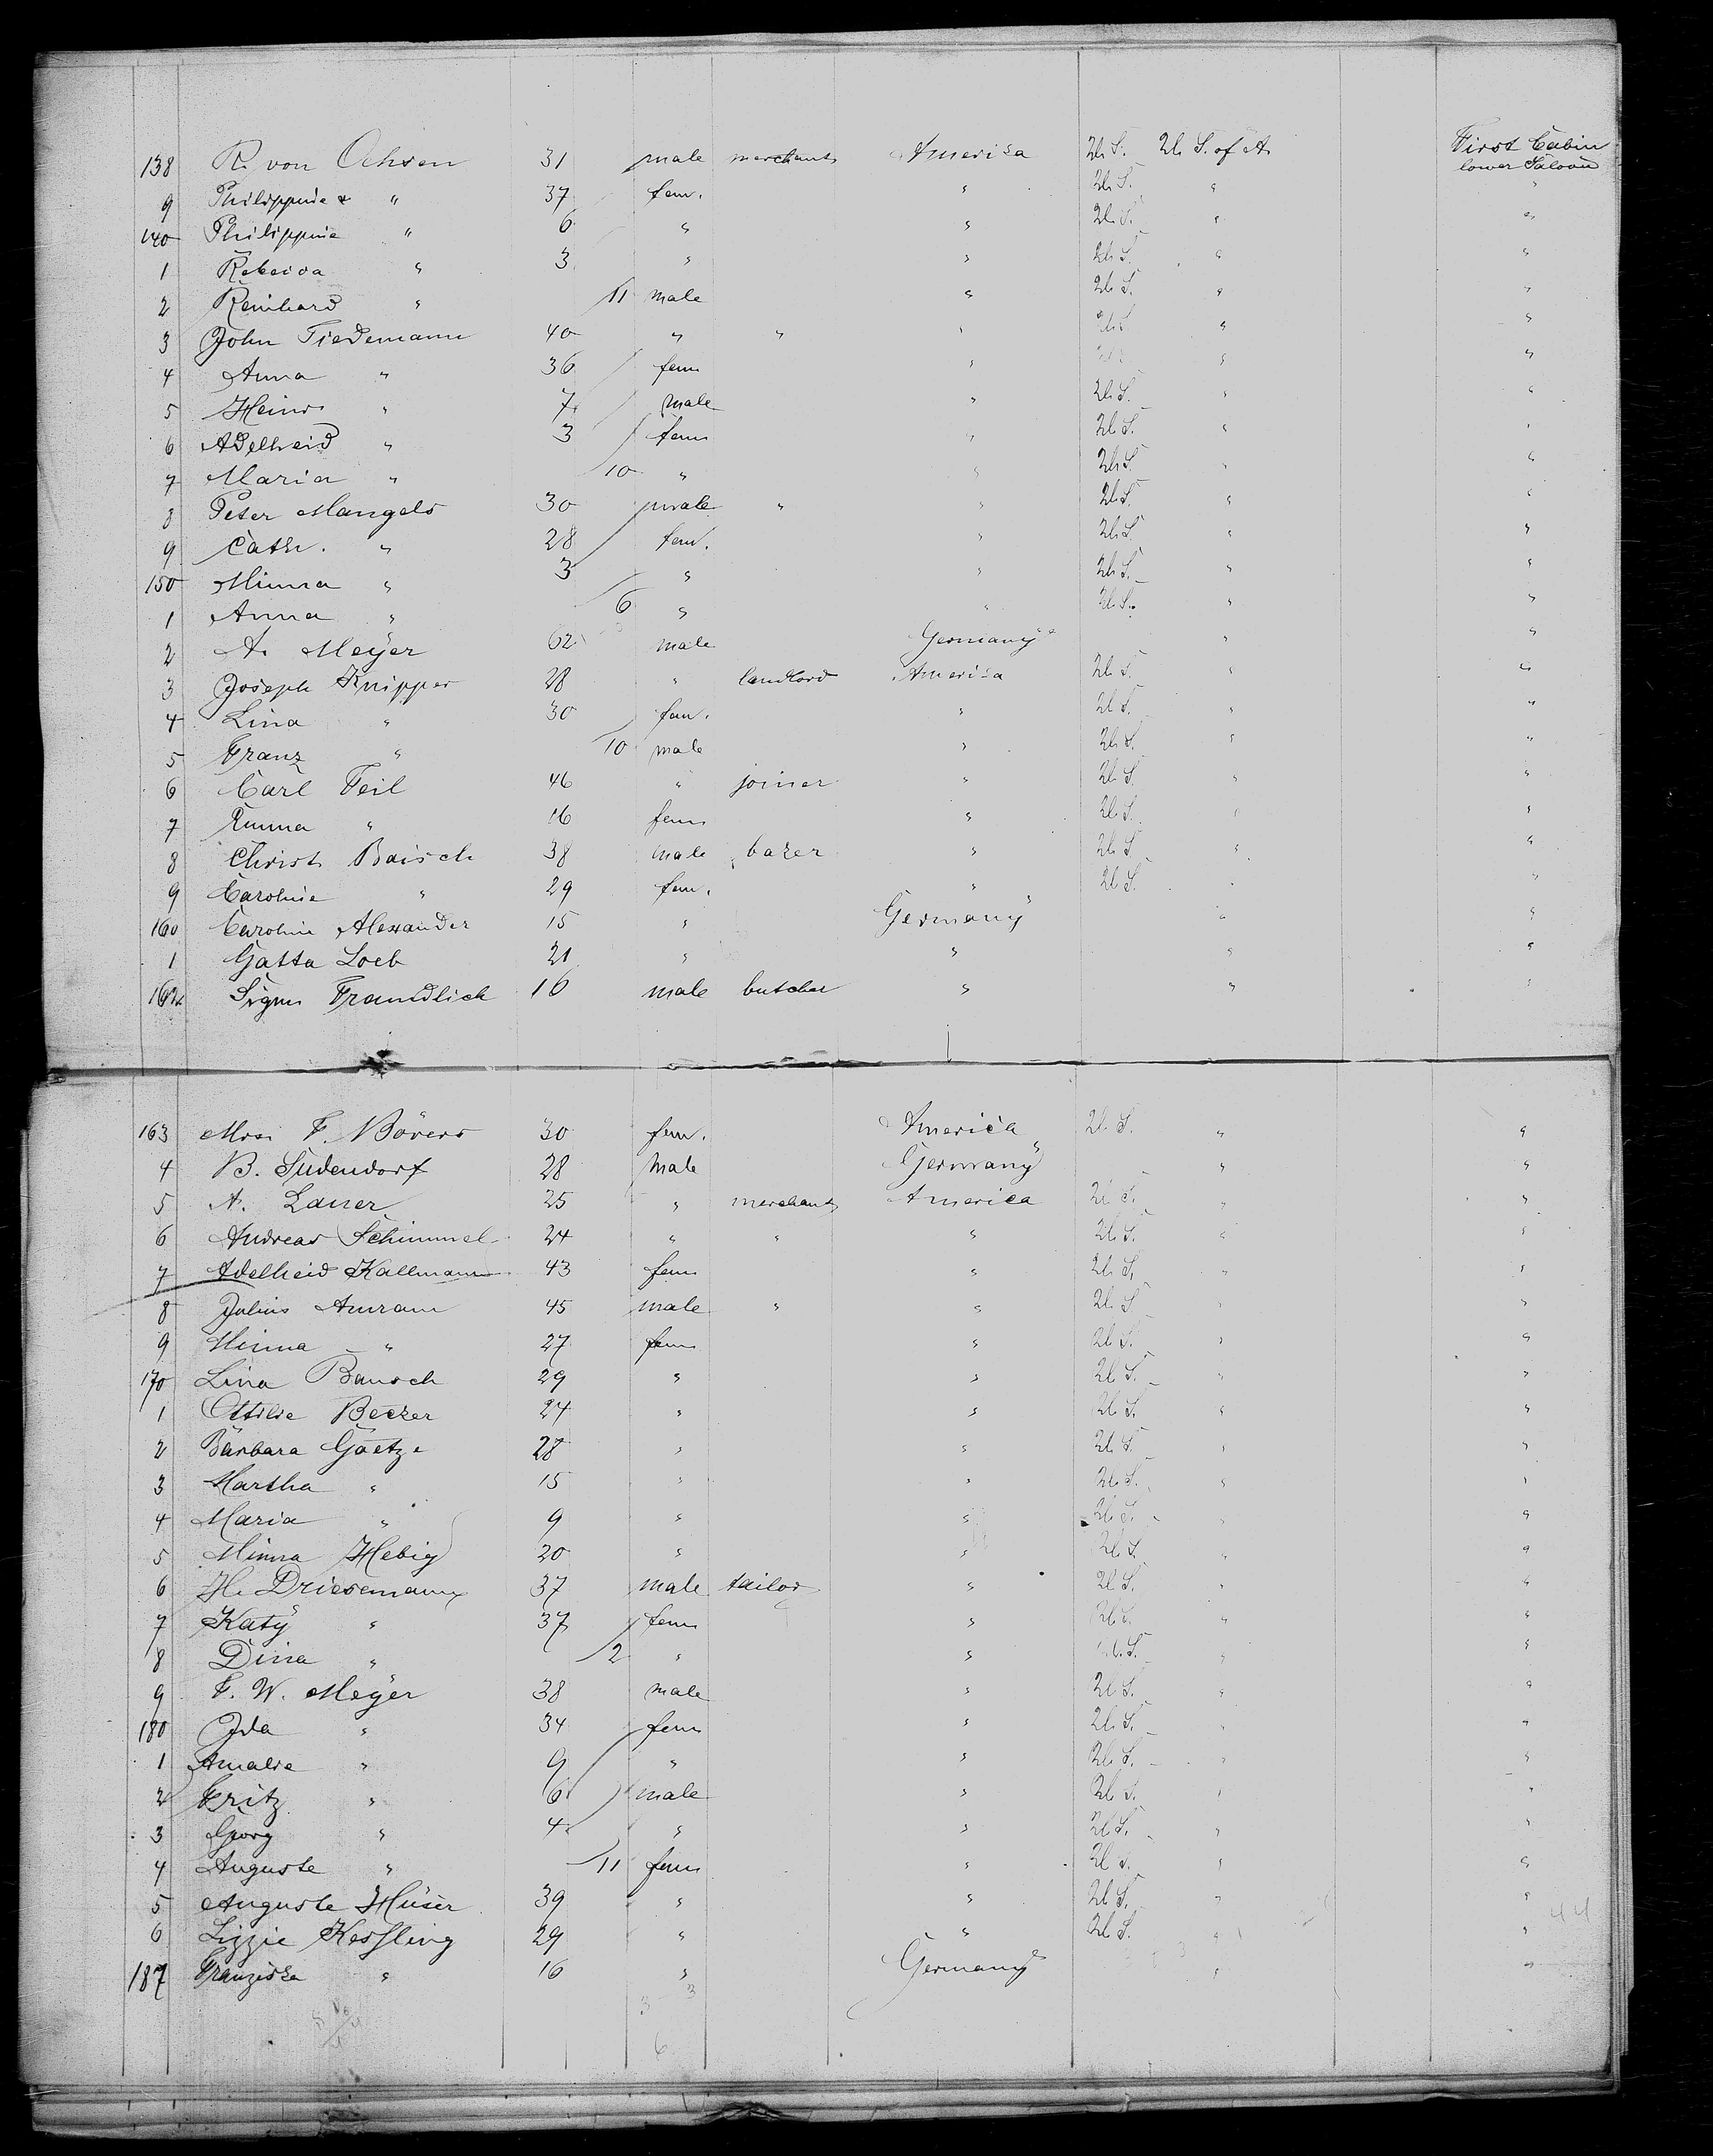 138 R. von Ochsen 31 male merchant America U. S. U. S. of A. First Cabin lower Saloon
9 Philippine " 37 fem. " U. S. " "
140 Philippine " 6 " " U. S. " "
1 Rebecca " 3 " " U. S. " "
2 Reinhard " 11 male " U. S. " "
3 John Tiedemann 40 " " " U. S. " "
4 Anna " 36 fem " U. S. " "
5 Heinr " 7 male " U. S. " "
6 Adelheid " 3 fem " U. S. " "
7 Maria " 10 " " U. S. " "
8 Peter Mangels 30 male " " U. S. " "
9 Cath. " 28 fem. " U. S. " "
150 Minna " 3 " " U. S. " "
1 Anna " 6 " " U. S. " "
2 A. Meÿer 62 male Germanÿ " "
3 Joseph Knipper 28 " landlord America U. S. " "
4 Lina " 30 fem. " U. S. " "
5 Franz " 10 male " U. S. " "
6 Carl Feil 46 " joiner " U. S. " "
7 Emma " 16 fem " U. S. " "
8 Christ Baisch 38 male baker " U. S. " "
9 Caroline " 29 fem. " U. S. " "
160 Caroline Alexander 15 " Germanÿ " "
1 Gatta Loeb 21 " " " "
162 Sigm Framdlich 16 male butcher " " "
163 Mrs. F. Bövers 30 fem. America U. S. " "
4 B. Südendorf 28 male Germanÿ " "
5 A. Lauer 25 " merchant America U. S. " "
6 Andreas Schimmel 24 " " " U. S. " "
7 Adelheid Kallmann 43 fem " U. S. " "
8 Julius Amram 45 male " " U. S. " "
9 Minna " 27 fem " U. S. " "
170 Lina Bausch 29 " " U. S. " "
1 Ottilie Becker 24 " " U. S. " "
2 Barbara Goetze 28 " " U. S. " "
3 Martha " 15 " " U. S. " "
4 Maria " 9 " " U. S. " "
5 Minna Hebig 20 " " U. S. " "
6 H. Driesmann 37 male tailor " U. S. " "
7 Katÿ " 37 fem " U. S. " "
8 Dina " 2 " " U. S. " "
9 F. W. Meÿer 38 male " U. S. " "
180 Ida " 34 fem " U. S. " "
1 Amalie " 9 " " U. S. " "
2 Fritz " 6 male " U. S. " "
3 Georg " 4 " " U. S. " "
4 Auguste " 11 fem " U. S. " "
5 Auguste Hüser 39 " " U. S. " "
44
6 Lizzie Kessling 29 " " U. S. " "
187 Franziska " 16 " Germanÿ " "
3 3
6